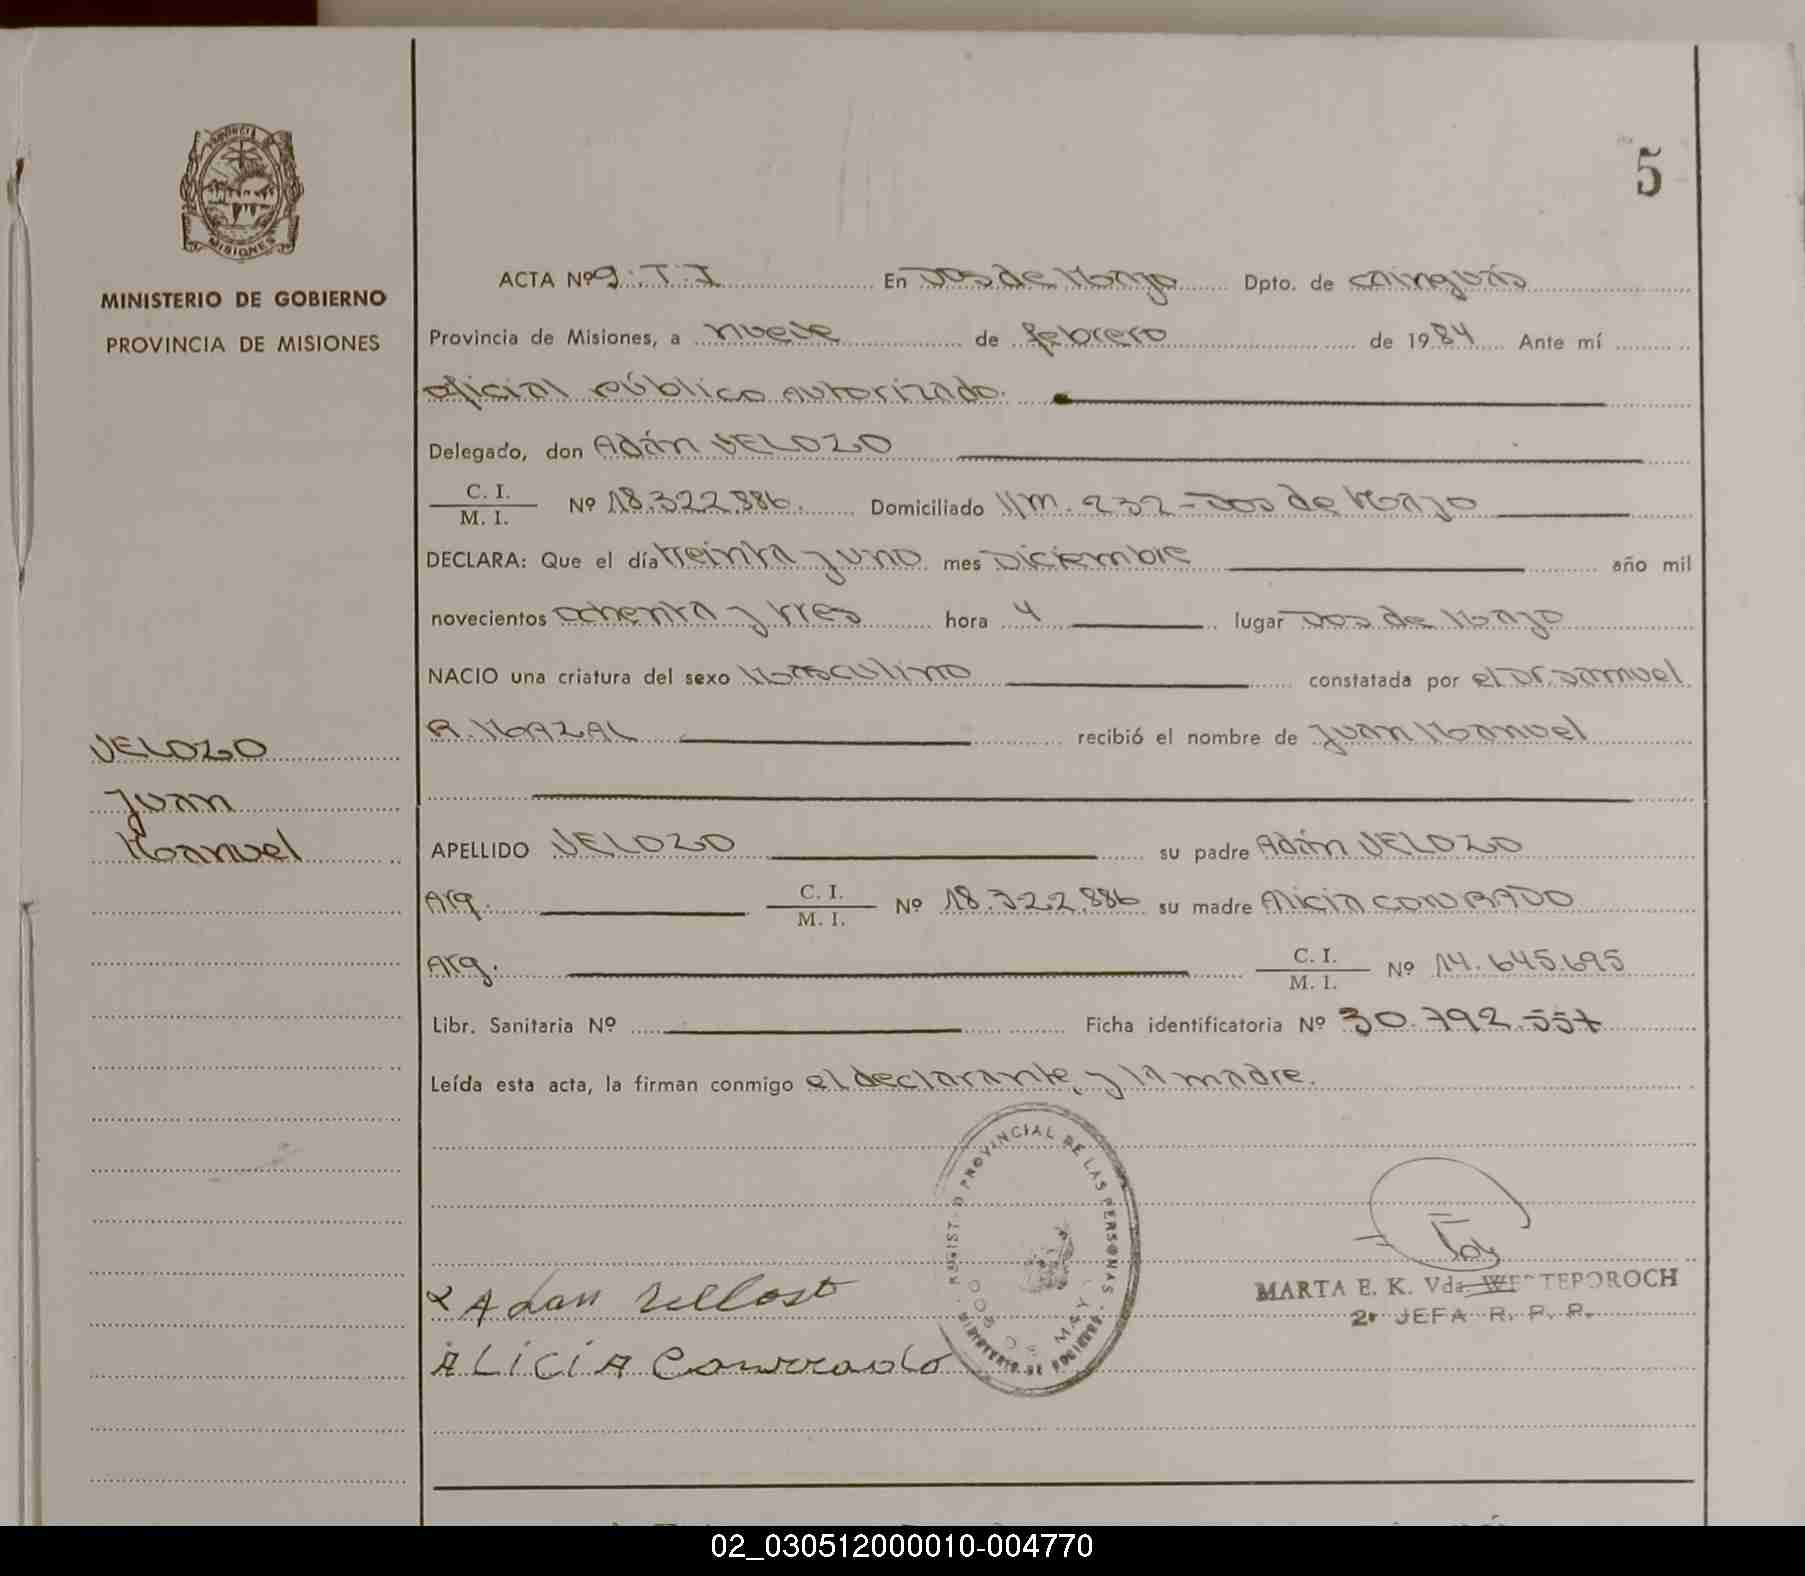 5
PROVINCIA
MISIONES
MINISTERIO DE GOBIERNO
PROVINCIA DE MISIONES
ACTA Nº 9:T:I En Dos de Mayo Dpto. de Cainguás
Provincia de Misiones, a nueve de febrero de 1984 Ante mí
oficial público autorizado.
Delegado, don Adán VELOZO
C. I.
M. I. Nº 18.322.886. Domiciliado Km. 232 - Dos de Mayo
DECLARA: Que el día treinta y uno mes Diciembre año mil
novecientos ochenta y tres hora 4 lugar Dos de Mayo
NACIO una criatura del sexo Masculino constatada por el Dr. Samuel
R. MAZAL recibió el nombre de Juan Manuel
VELOZO
Juan
Manuel
APELLIDO VELOZO su padre Adán VELOZO
Arg. C. I.
M. I. Nº 18.322.886 su madre Alicia CONRADO
Arg. C. I.
M. I. Nº 14.645.695
Libr. Sanitaria Nº Ficha identificatoria Nº 30.792.557
Leída esta acta, la firman conmigo el declarante, y la madre.
PROVINCIAL DE LAS PERSONAS
DOS DE MAY
MINISTERIO DE GOBIERNO
Adan
ALICIA
MARTA E. K. Vda. TEPOROCH
2ª JEFA R. P. P.
02_030512000010-004770